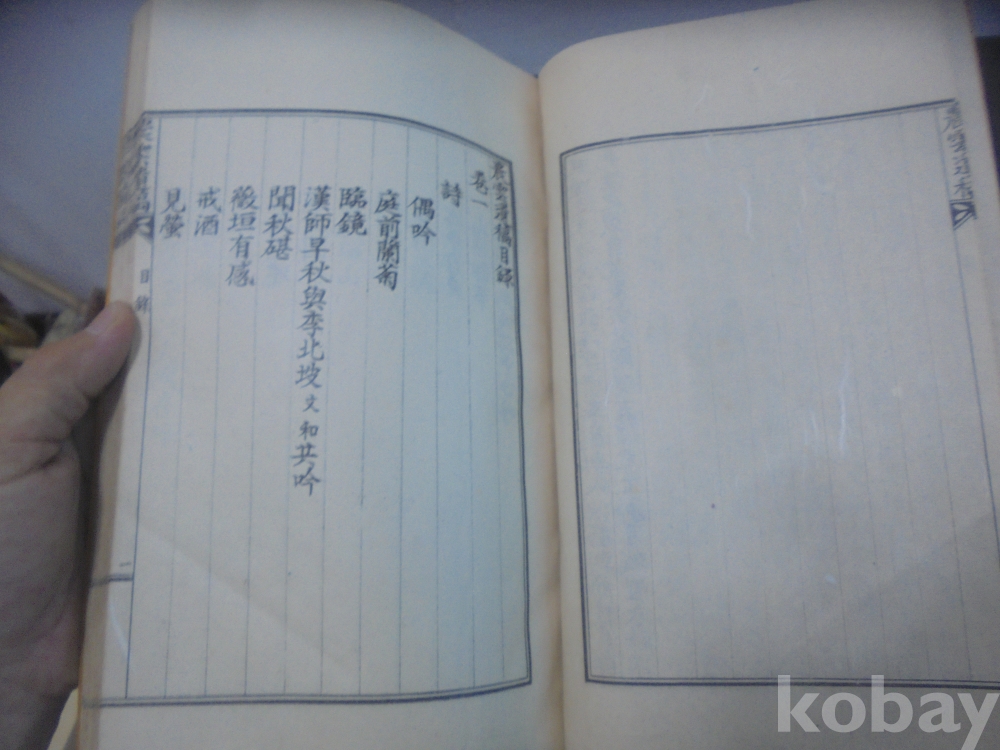 雲遺稿目錄
卷一
詩
偶吟
庭前蘭菊
臨鏡
漢師早秋與李北坡文和共吟
聞秋碪
薇垣有感
戒酒
見螢
目錄
一
kobay